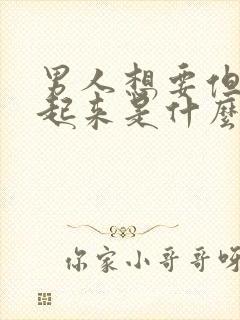 男人想要但
起来是什麼
你家小哥哥呀